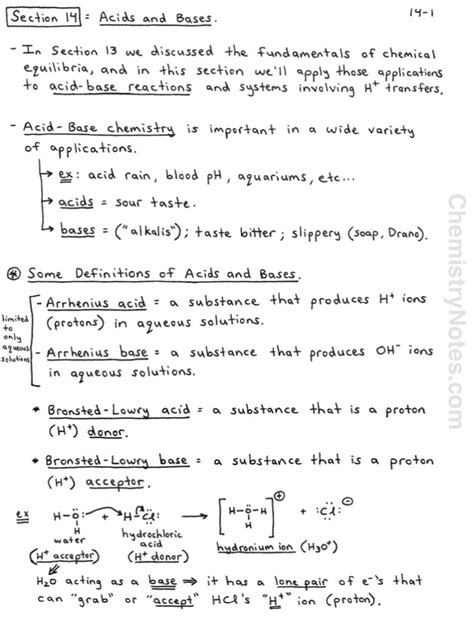 Section 14 : Acids and Bases.
14-1
- In Section 13 we discussed the fundamentals of chemical
equilibria, and in this section we'll apply those applications
to acid-base reactions and systems involving H⁺ transfers.
- Acid-Base chemistry is important in a wide variety
of applications.
→ ex: acid rain, blood pH, aquariums, etc...
→ acids = sour taste.
→ bases = ("alkalis"); taste bitter; slippery (soap, Drano).
* Some Definitions of Acids and Bases.
limited
to
only
aqueous
solutions
- Arrhenius acid = a substance that produces H⁺ ions
(protons) in aqueous solutions.
- Arrhenius base = a substance that produces OH⁻ ions
in aqueous solutions.
* Bronsted-Lowry acid = a substance that is a proton
(H⁺) donor.
* Bronsted-Lowry base = a substance that is a proton
(H⁺) acceptor.
ex H-Ö: + H-Cl: → [H-O-H]⁺ + :Cl:⁻
H H
water
hydrochloric
acid
hydronium ion (H₃O⁺)
(H⁺ acceptor) (H⁺ donor)
H₂O acting as a base ⇒ it has a lone pair of e⁻'s that
can "grab" or "accept" HCl's "H⁺" ion (proton).
ChemistryNotes.com